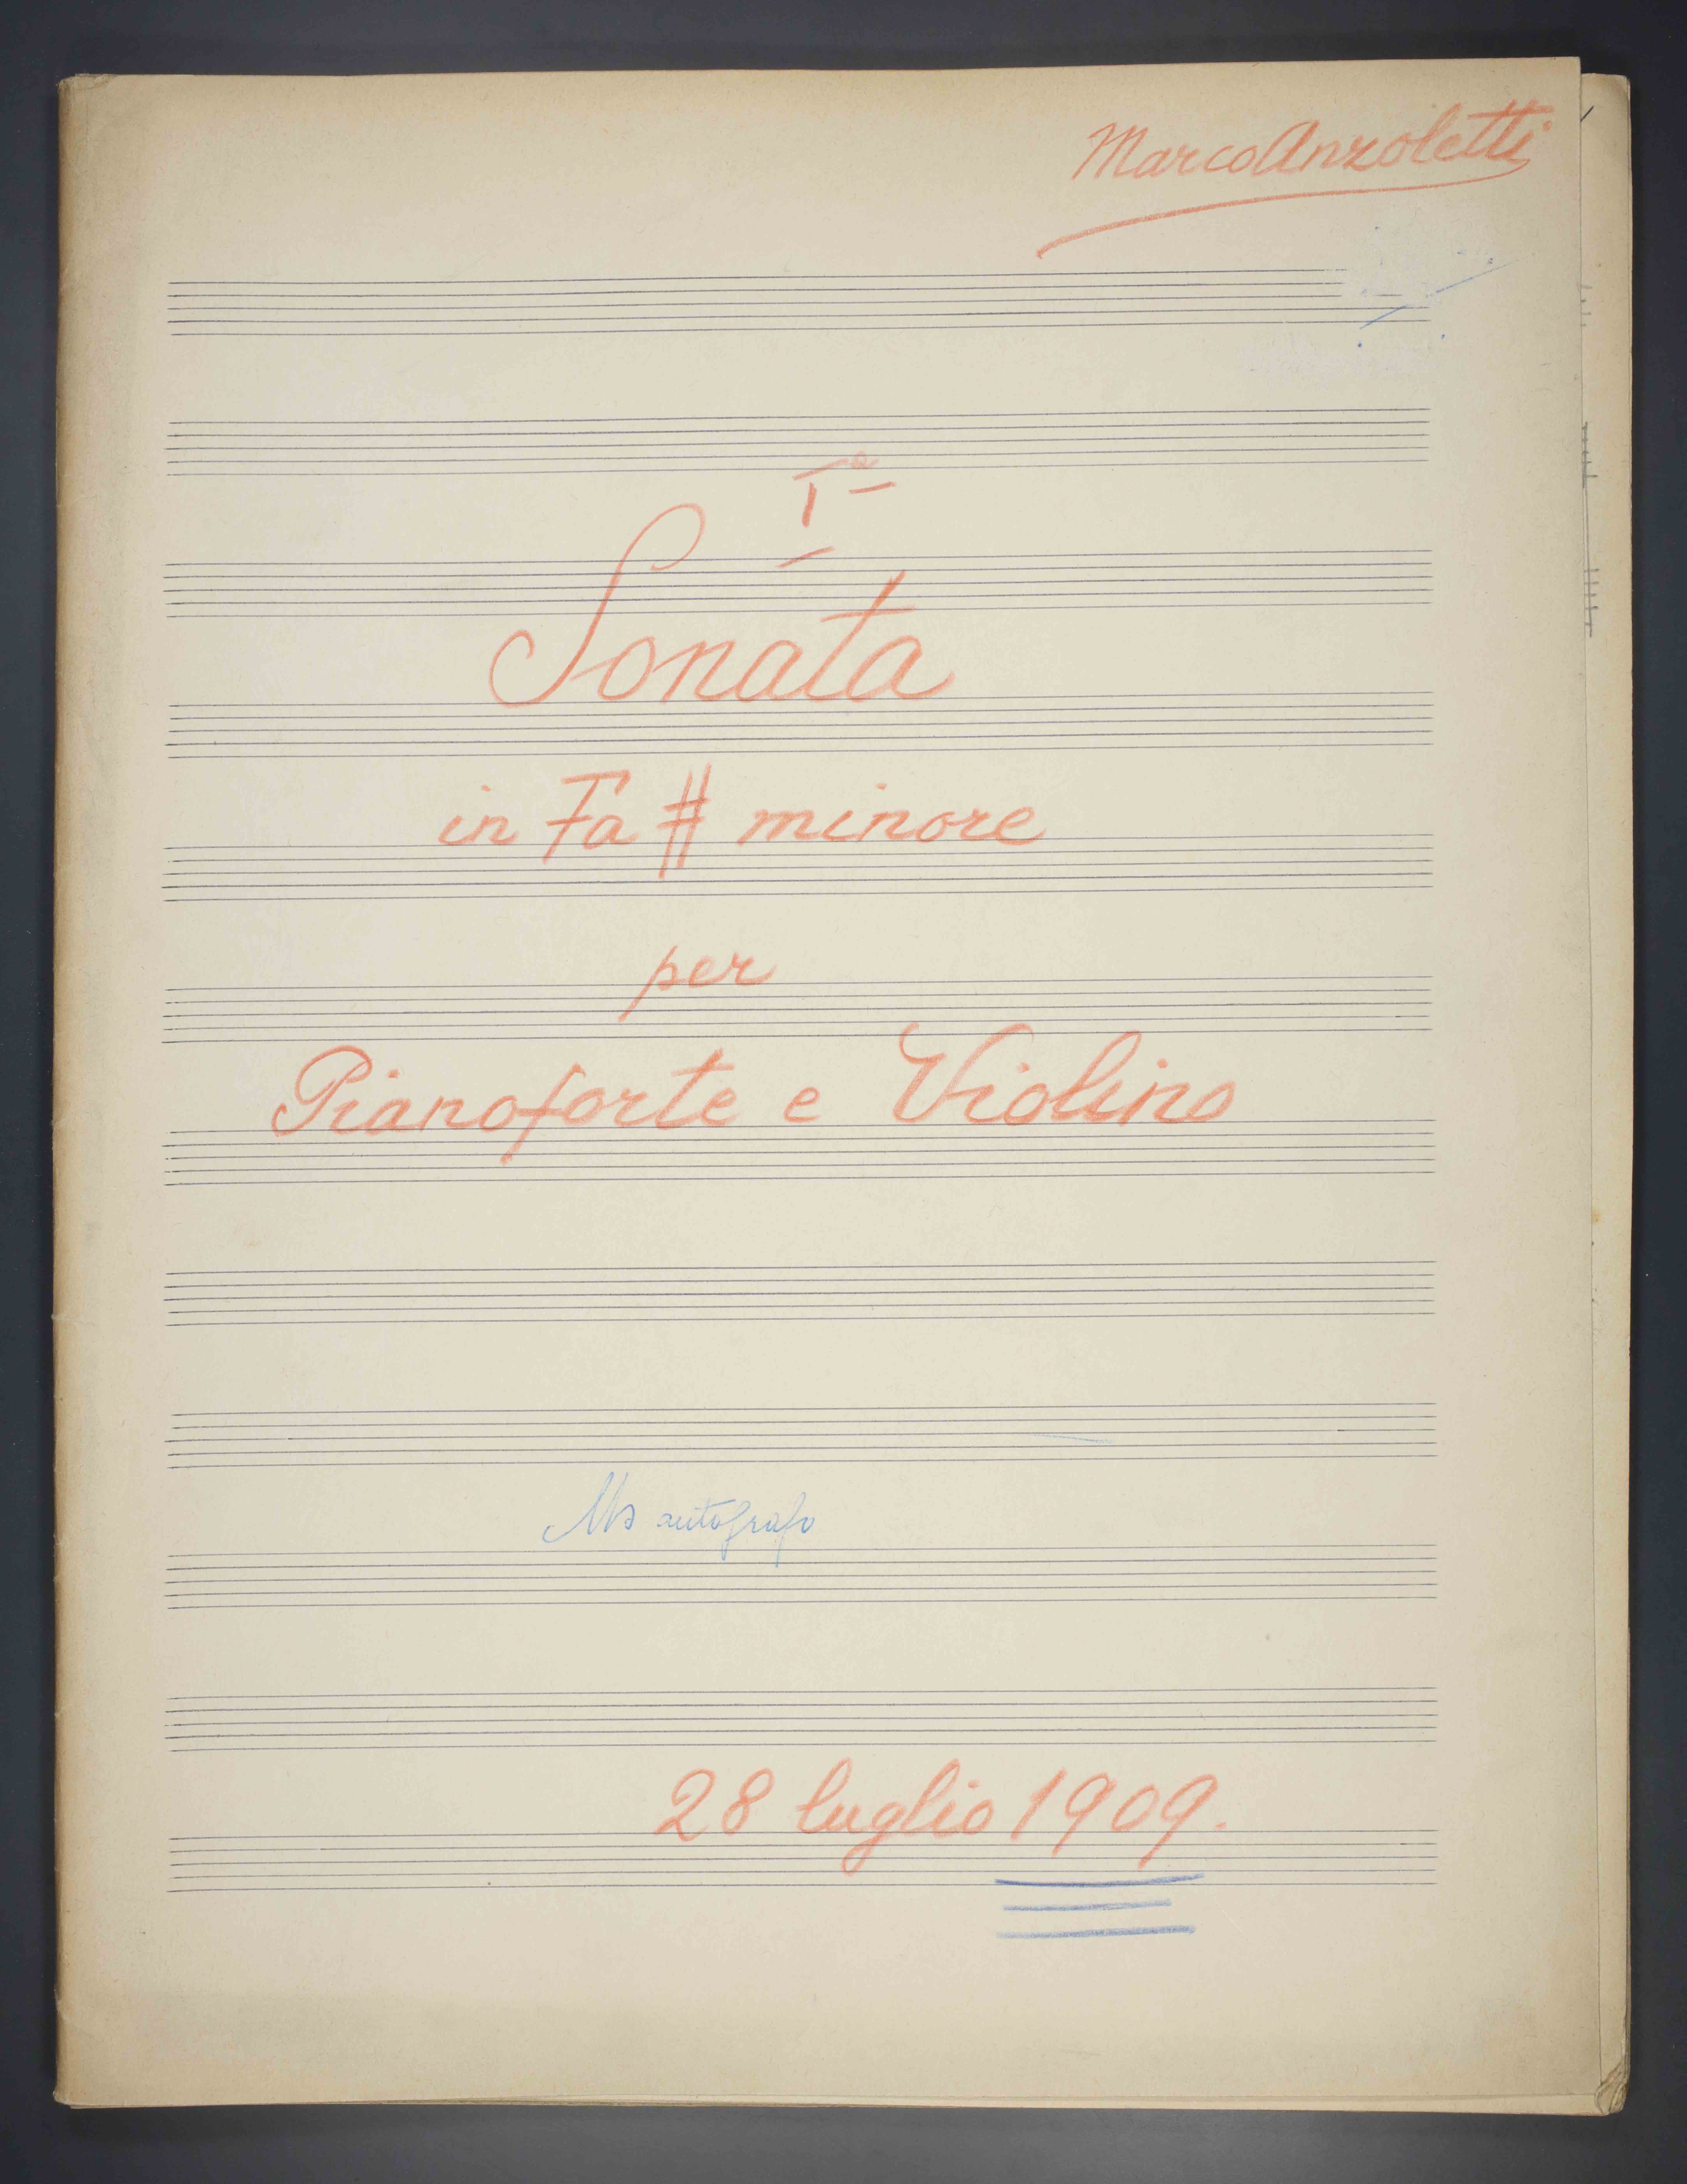 Marco Anzoletti
Iª
Sonata
in Fa # minore
per
Pianoforte e Violino
Ms autografo
28 luglio 1909.